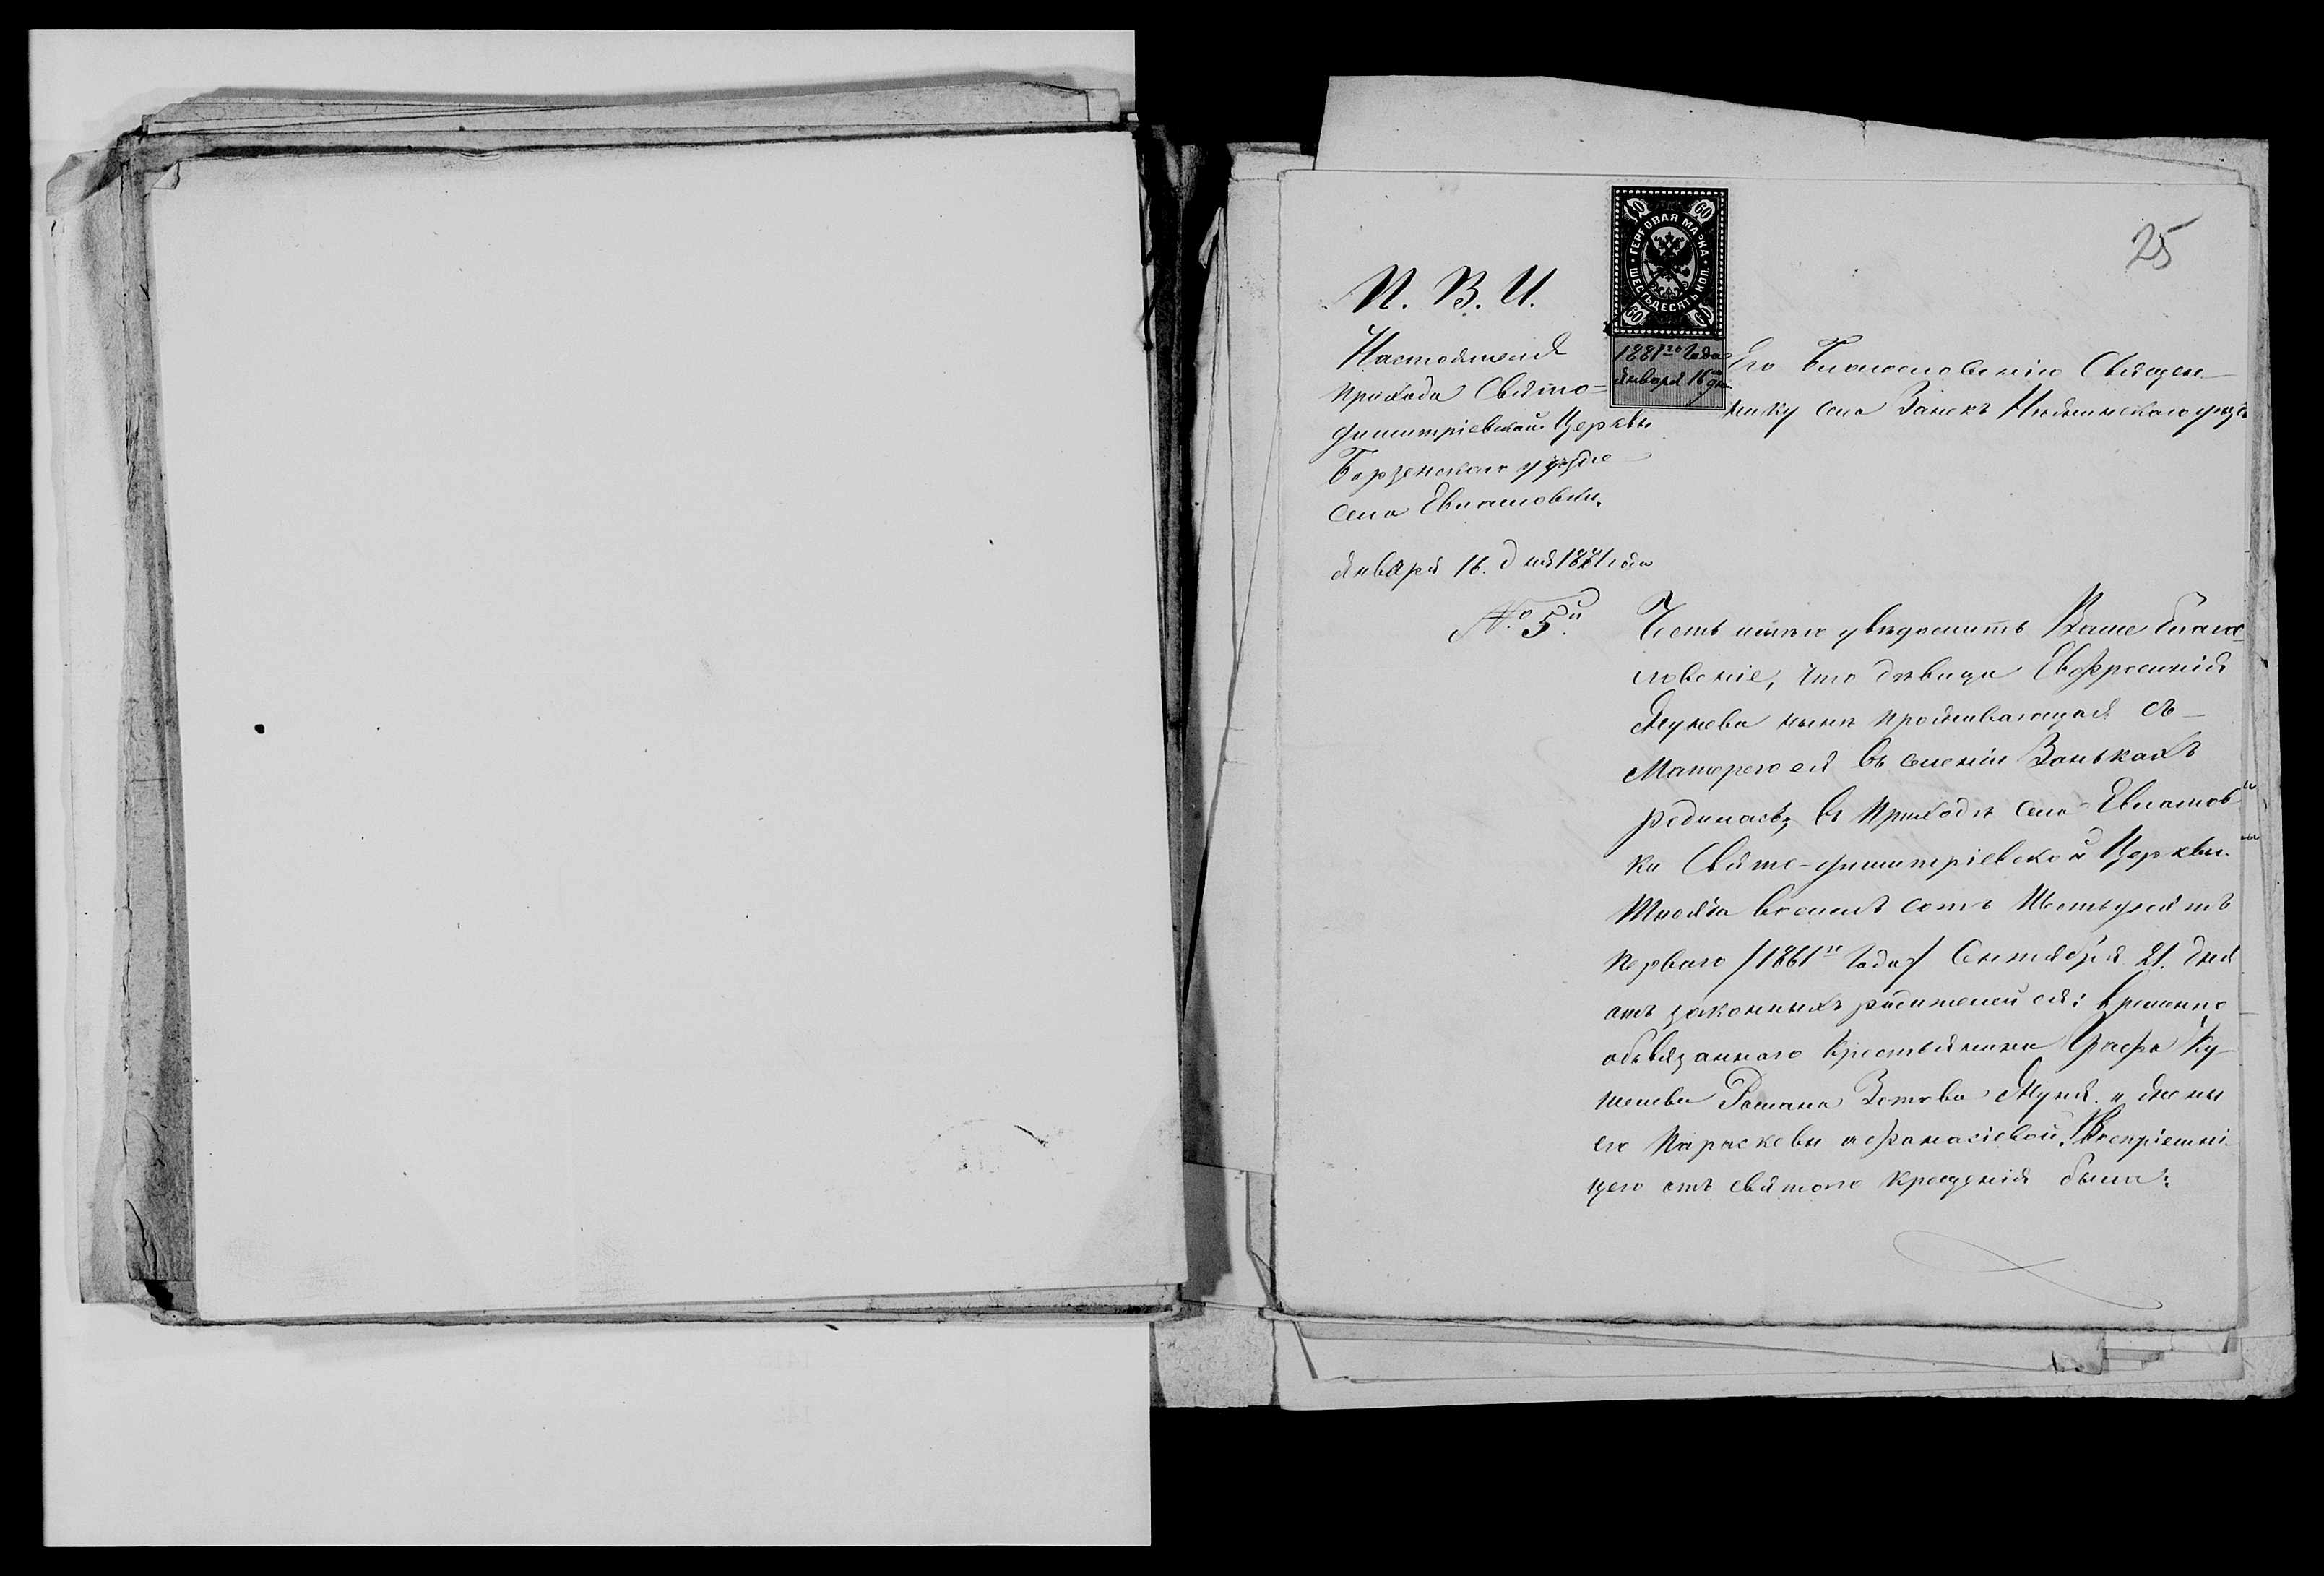 25
ГЕРБОВАЯ МАРКА
ШЕСТЬДЕСЯТЬ КОП.
60 60
60 60
1881го Года
Января 16 дня
П. В. И.
Настоятеля
прихода Свято=
Димитріевской Церквы
Борзенскаго уѣзда
села Евлашовки,
Января 16. дня 1881 года
№ 5й.
Его Благословенію Священ-
нику села Занекъ Нѣжинскаго уѣзда
Честь имѣю увѣдомить Ваше благо-
словеніе, что дѣвица Евфросинія
нынѣ проживающая съ
Матерею ея въ селеніи Занькахъ
родилась, въ Приходѣ села Евлашов-
ки Свято-Димитріевской Церквы.
Тысяча восемъ сотъ Шестьдесятъ
перваго /1861го Года/ Сентября 21. дня
отъ законныхъ родителей ея: временно
обязаннаго крестьянина Графа Ку-
шелева Романа Зотова и жены
его Параскевы Афанасіевой. Воспріемни-
цею отъ святого крещенія была: